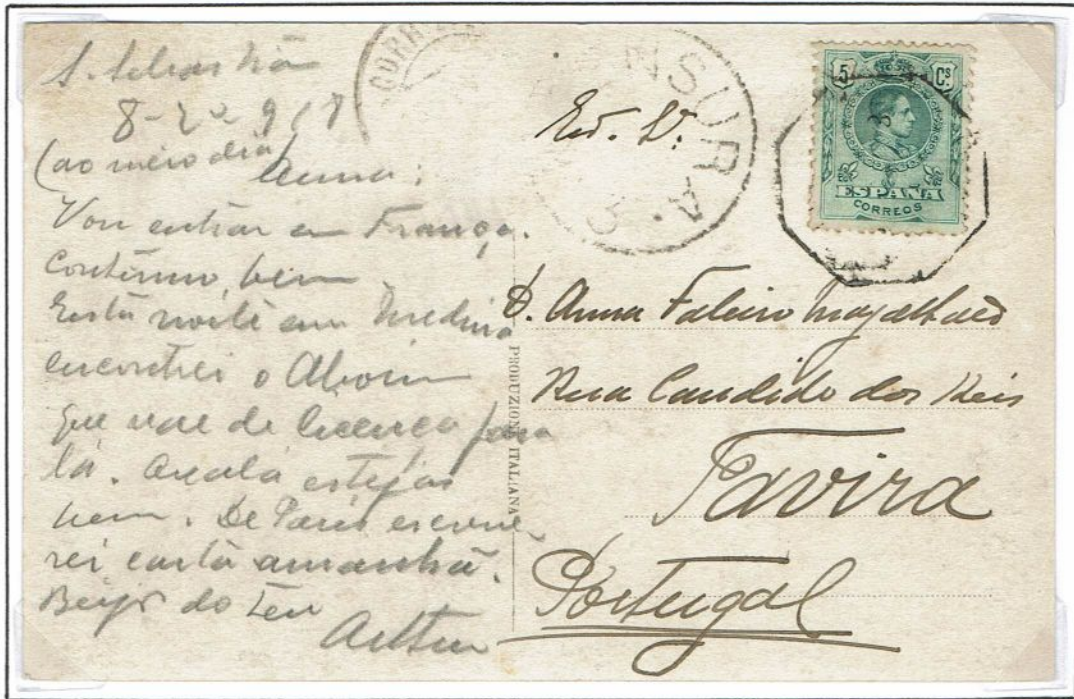 S. Sebastião
8-2º-918
(ao meio dia)
Anna:
Vou entrar em França.
Continuo bem
Esta noite em Medina
encontrei o Aboim
que vae de licença para
lá. Oxalá estejas
bem. De Paris escreve-
rei carta amanhã.
Beijos do teu
Arthur
CORR
CENSURA
5 Cs
ESPAÑA
CORREOS
D. Anna Faleiro Magalhães
Rua Candido dos Reis
Tavira
Portugal
PRODUZIONE ITALIANA